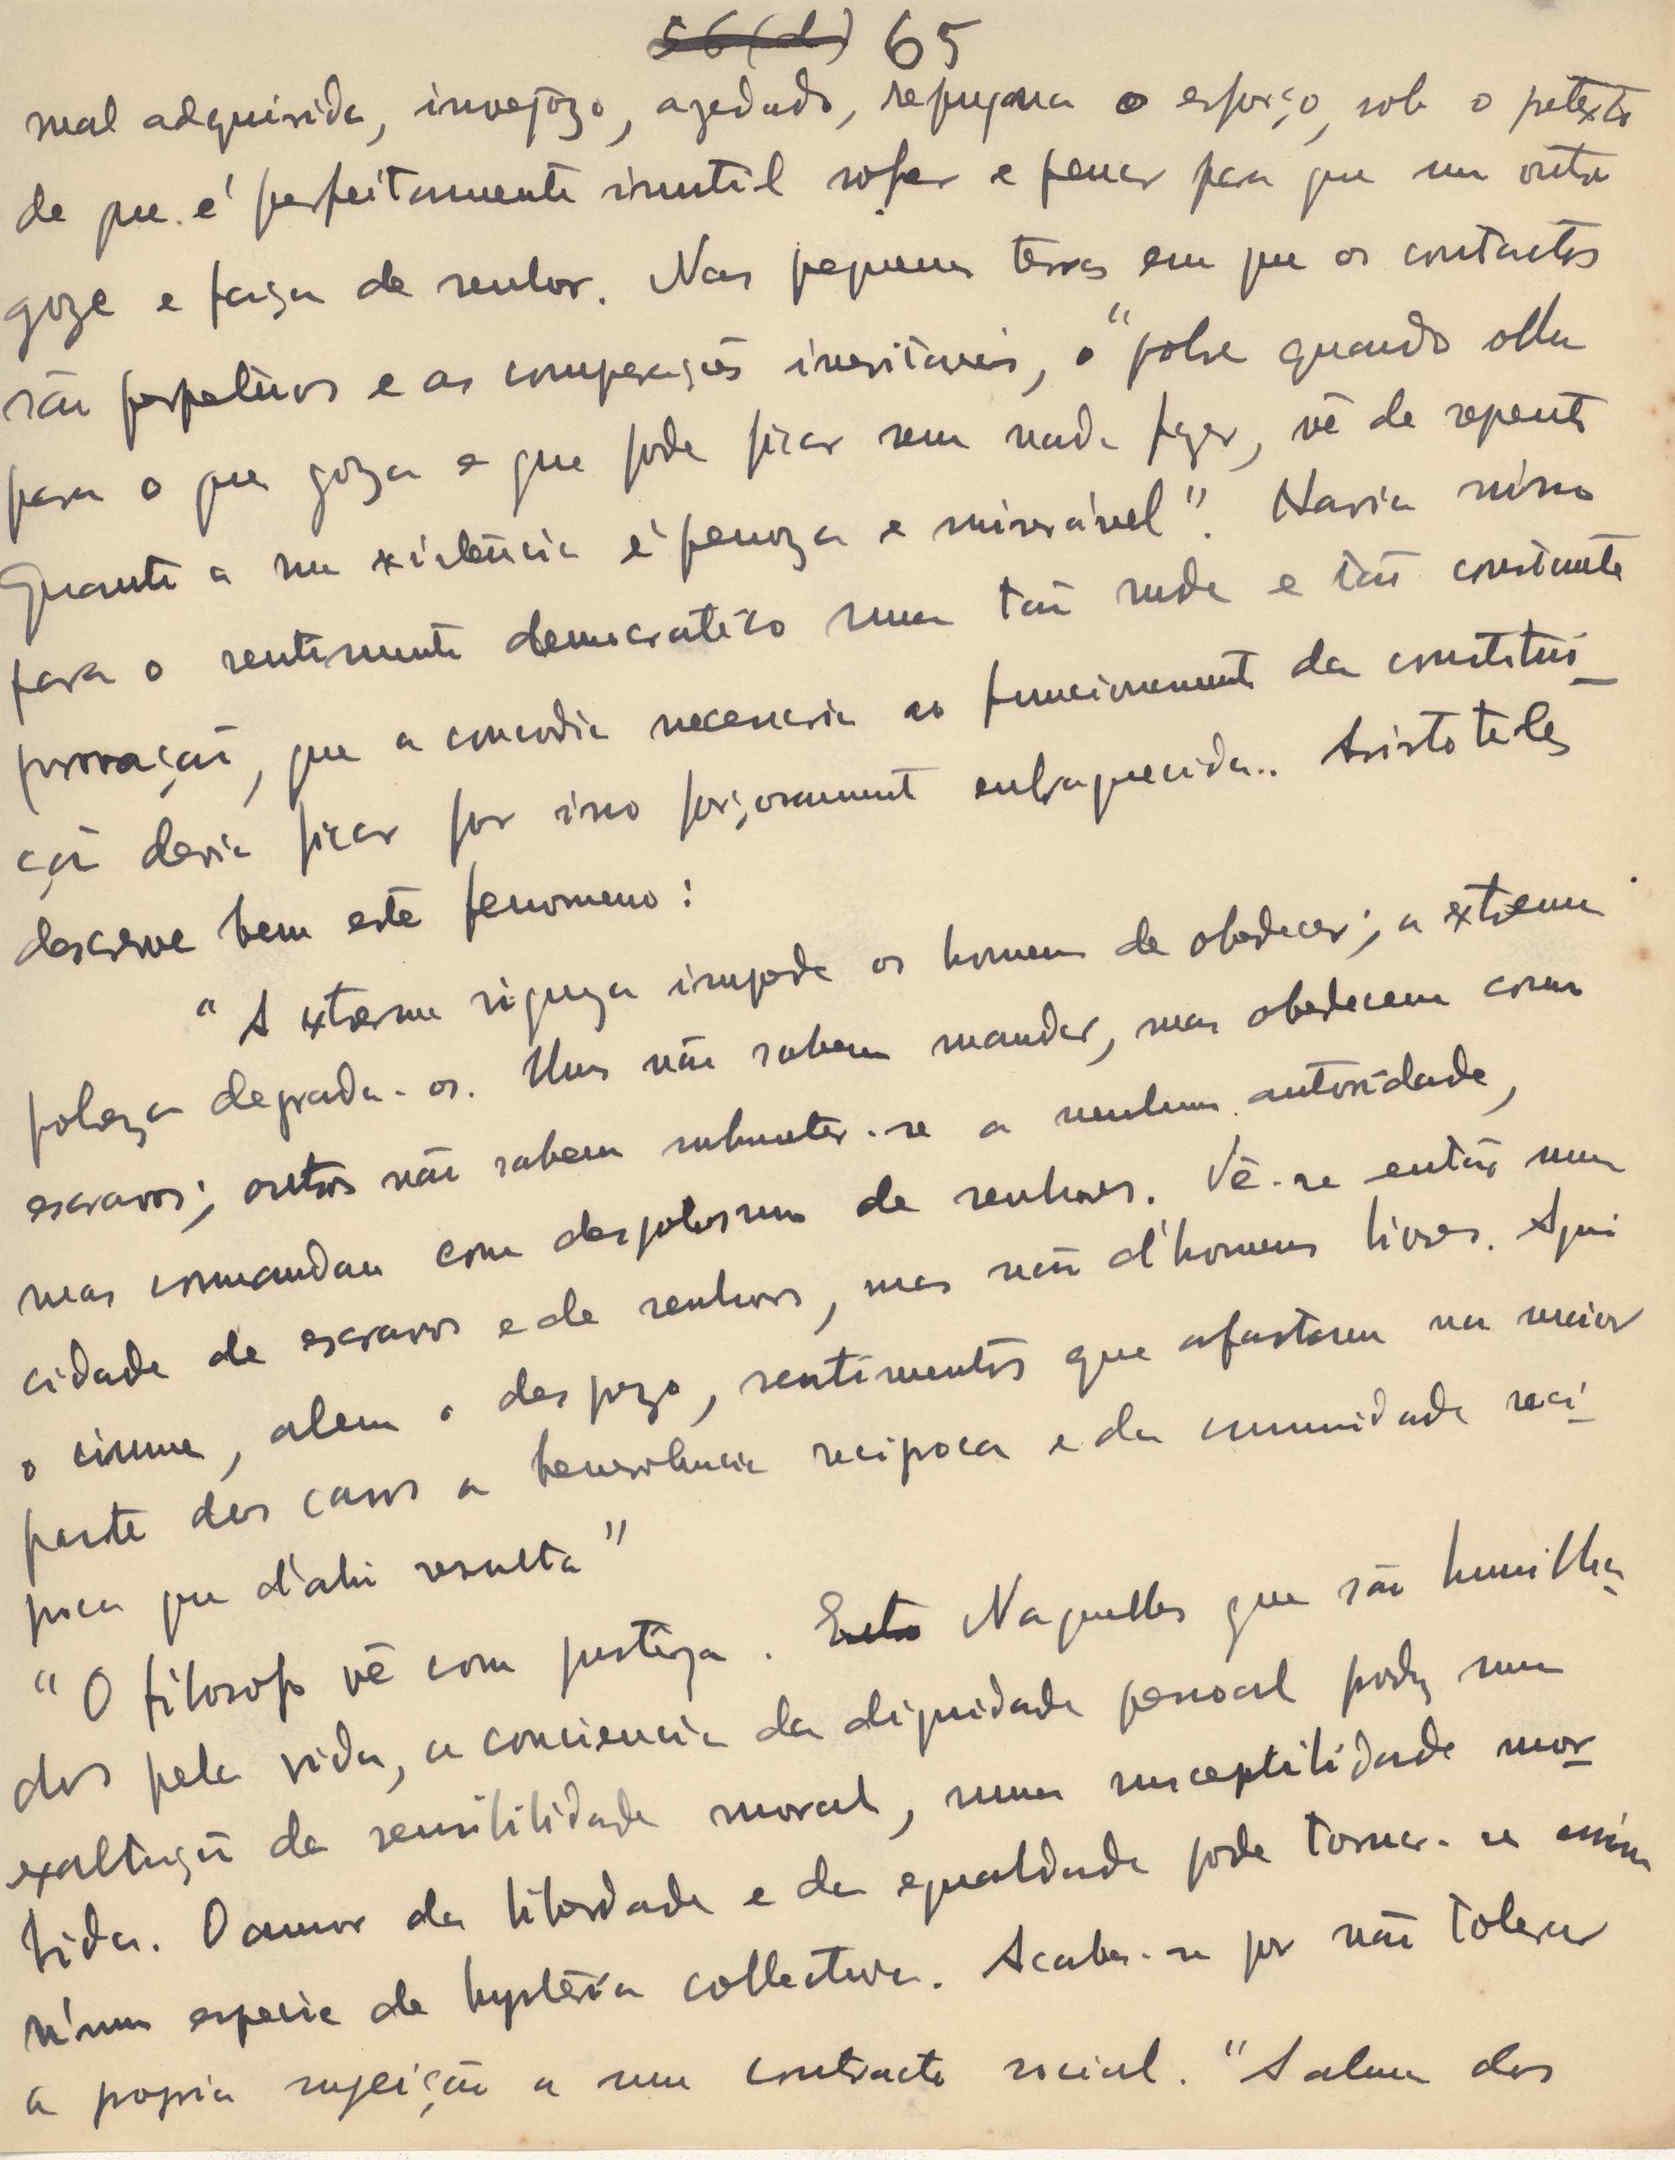 56(d) 65
mal adquirida, invejozo, azedado, repugna o esforço, sob o pretexto
de que é perfeitamente inutil sofrer e penar para que um outro
goze e faça de senhor. Nas pequenas terras em que os contactos
são perpetuos e as comparações inevitaveis, o "pobre quando olha
para o que goza e que pode ficar sem nada fazer, vê de repente
quanto a sua existência é penoza e miserável". Havia nisso
para o sentimento democratico uma tão rude e tão constante
provoação, que a concordia necessaria ao funcionamento da constitui-
ção devia ficar por isso forçosamente enfraquecida.. Aristoteles
descreve bem este fenomeno:
"A extrema riqueza impede os homens de obedecer; a extrema
pobreza degrada-os. Uns não sabem mandar, mas obedecem como
escravos; outros não sabem submeter-se a nenhuma autoridade,
mas commandam com despotismo de senhores. Vê-se então uma
cidade de escravos e de senhores, mas não d'homens livres. Aqui
o ciume, alem o desprezo, sentimentos que afastam na maior
parte dos casos a benevolencia reciproca e da comunidade reci-
proca que d'ahi resulta"
"O filosofo vê com justeza. Esta Naquelles que são humilha-
dos pela vida, a conciencia da dignidade pessoal produz uma
exaltação da sensibilidade moral, uma susceptibilidade mor-
bida. O amor da liberdade e da egualdade pode tornar-se assim
n'uma especie de hysteria collectiva. Acaba-se por não tolerar
a propria sujeição a um contracto social. "Salem dos